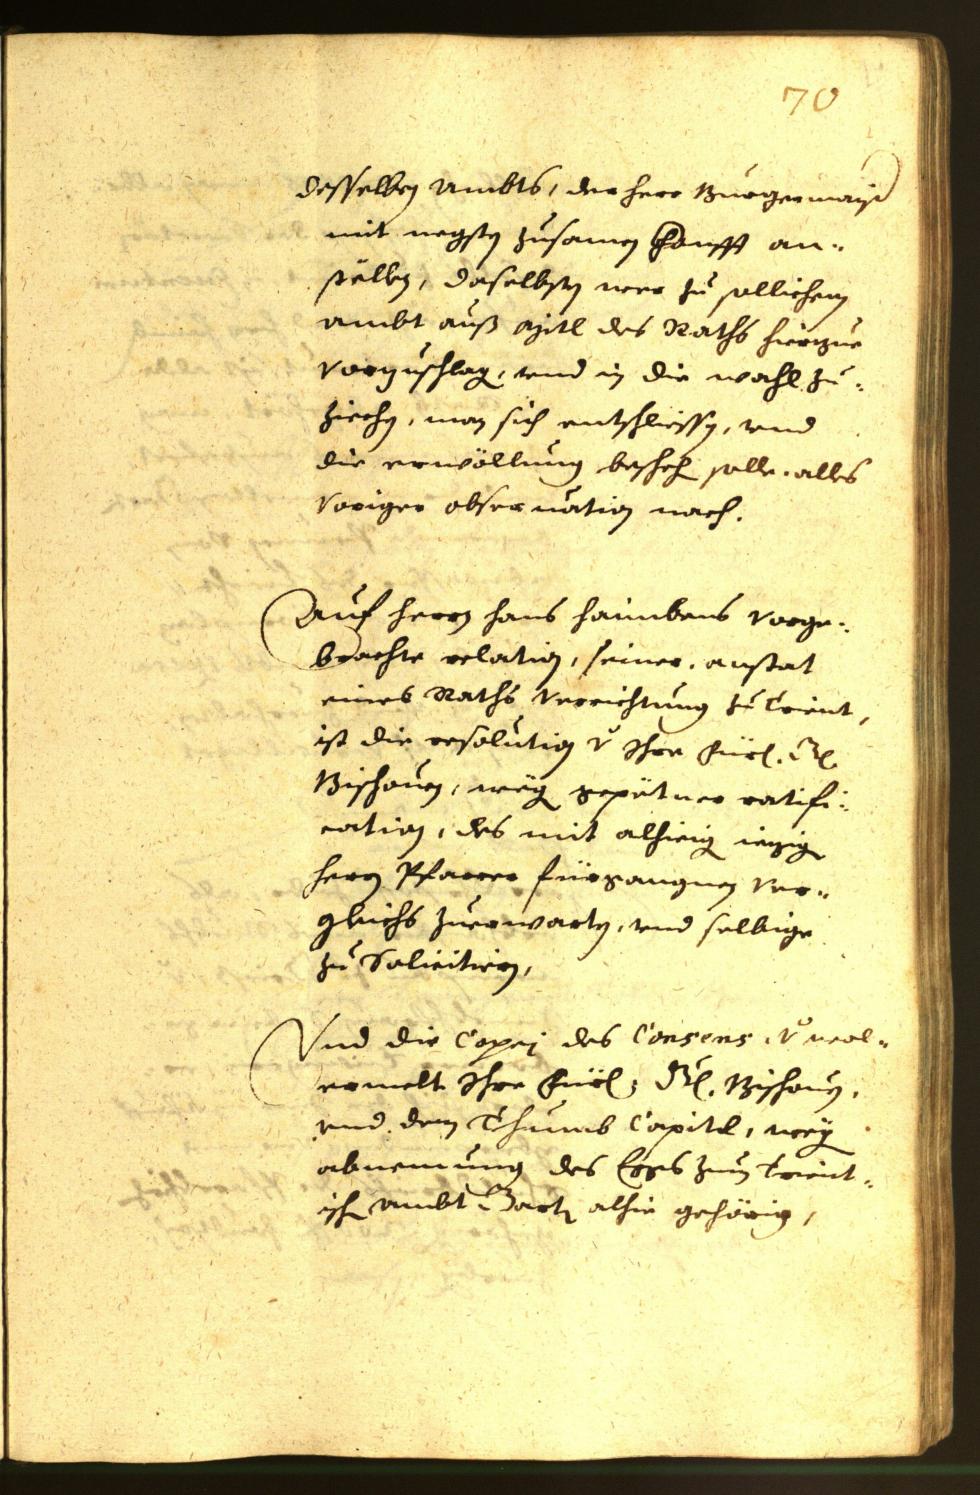 70
desselben Ambts, der herr Burgermaister
mit negsten zusamen khonfft an-
stellen, daselbsten wer zu sollichem
ambt auß mitl des Raths hierzue
vorzuschlagen, vnd in die wahl zu-
ziechen, man sich entschliessen, vnd
die erwöllung beschehen solle. alles
voriger obseruation nach.
Auf herrn Hans Haimbens vorge-
brachte relation, seiner, anstat
eines Raths verrichtung zu Trient,
ist die resolution von Ihre Fürl. Gl.
Bischouen, wegen gepetner ratifi-
cation, des mit alhieig iezigen
herrn Pfarrer fürgangnen ver-
gleichs zuerwarten, vnd selbige
zu Solicitiern,
Vnd die Copej des Consens, von wol-
ermelt Ihre Fürl: Gl. Bischouen,
vnd dem Thumb Capitl, wegen
abnemung des zum Trient-
isch ambt alhie gehörig,